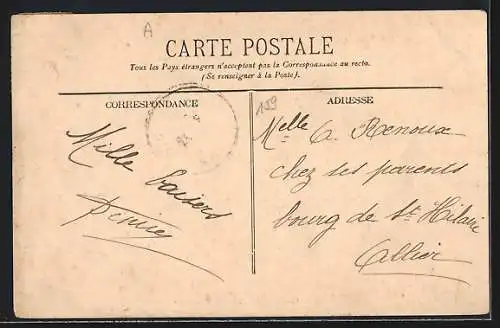 A
CARTE POSTALE
Tous les Pays étrangers n'acceptent pas la Correspondance au recto.
(Se renseigner à la Poste).
CORRESPONDANCE
Mille baisers
Denise
159
ADRESSE
Melle A. Renoux
chez ses parents
bourg de St Hilaire
Allier